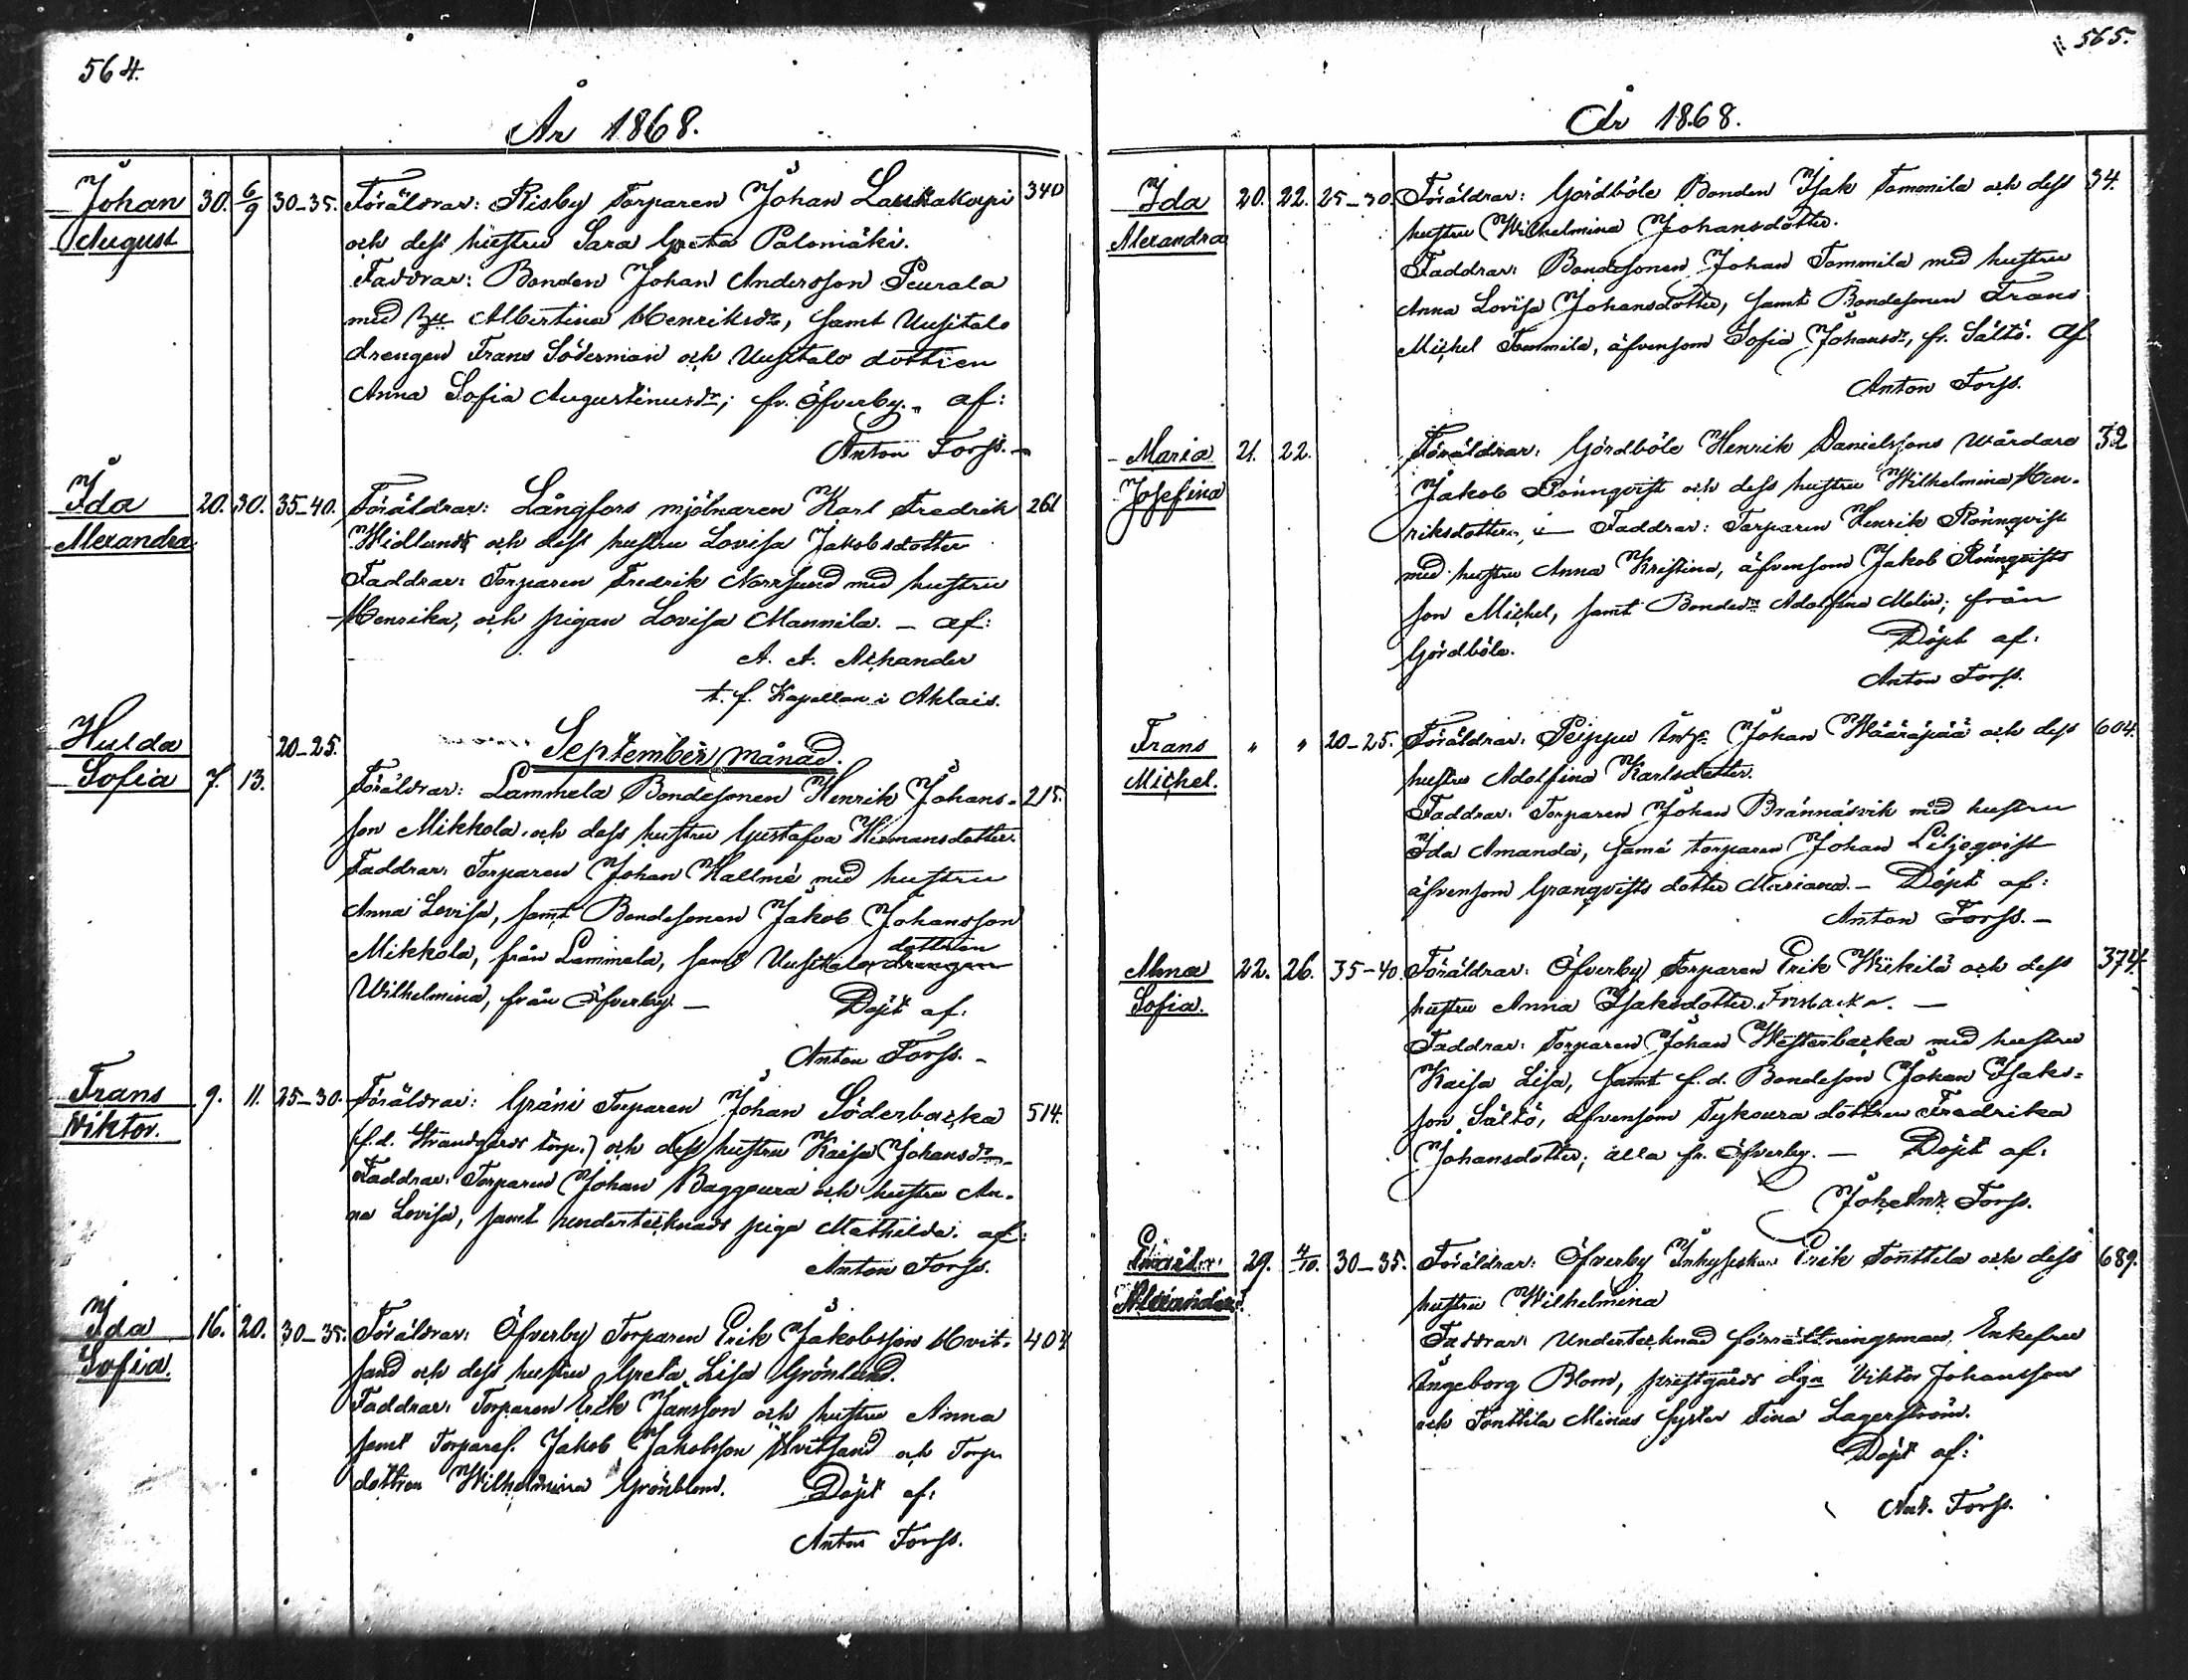 564.
År 1868.
Johan August 30. 6/9 30-35. Föräldrar: Risby Torparen Johan Laukakorpi 340
och dess hustru Sara Greta Palomäki.
Faddrar: Bonden Johan Andersson Peurala
med hu Albertina Henriksdr, samt Uusitalo
drengen Frans Söderman och Uusitalo dottren
Anna Sofia Augustinusdr; fr. Öfverby. af:
Anton Forss. -
Ida Alexandra 20. 30. 35-40. Föräldrar: Långfors mjölnaren Karl Fredrik 261
Widlund och dess hustru Lovisa Jakobsdotter
Faddrar: Torparen Fredrik Norrlund med hustru
Henrika, och pigan Lovisa Mannila. - af:
A. A. Achander
t. f. Kapellan i Ahlais.
September månad.
Hulda Sofia 7. 13. 20-25. Föräldrar: Lammela Bondesonen Henrik Johans- 215.
son Mikkola och dess hustru Gustafva Hermansdotter.
Faddrar: Torparen Johan Hallmé med hustru
Anna Lovisa, samt Bondesonen Jakob Johansson
Mikkola, från Lammela, samt Uusitalo drengen dottren
Wilhelmina, från Öfverby. - Döpt af:
Anton Forss. -
Frans Wiktor. 9. 11. 25-30. Föräldrar: Gräni Torparen Johan Söderbacka 514.
(f.d. Strandgårds torp.) och dess hustru Kaisa Johansdr.
Faddrar: Torparen Johan Baggoura och hustru An-
na Lovisa, samt undertecknads piga Mathilda. af:
Anton Forss.
Ida Sofia. 16. 20. 30-35. Föräldrar: Öfverby Torparen Erik Jakobsson Hvit- 404
sand och dess hustru Greta Lisa Grönlund.
Faddrar: Torparen Erik Jansson och hustru Anna
samt Torpares. Jakob Jakobsson Hvitsand och Torp.
dottren Wilhelmina Grönblom. Döpt af:
Anton Forss.
565.
År 1868.
Ida Alexandra 20. 22. 25-30. Föräldrar: Gårdböle Bonden Isak Tommila och dess 34.
hustru Wilhelmina Johansdotter.
Faddrar: Bondesonen Johan Tommila med hustru
Anna Lovisa Johansdotter, samt Bondesonen Frans
Michel Tommila, äfvensom Sofia Johansdr, fr. Sältö. Af
Anton Forss.
Maria Josefina 21. 22. Föräldrar: Gårdböle Henrik Danielssons Wårdare 32
Jakob Rönnqvist och dess hustru Wilhelmina Hen-
riksdotter. - Faddrar: Torparen Henrik Rönnqvist
med hustru Anna Kristina, äfvensom Jakob Rönnqvists
son Michel, samt Bondedr Adolfina Melin; från
Gårdböle. Döpt af:
Anton Forss.
Frans Michel. " " 20-25. Föräldrar: Peippu Johan Wääräpää och dess 604.
hustru Adolfina Karlsdotter.
Faddrar: Torparen Johan Brännäsvik med hustru
Ida Amanda, samt torparen Johan Liljeqvist
äfvensom Granqvists dotter Mariana. - Döpt af:
Anton Forss. -
Alma Sofia. 22. 26. 35-40. Föräldrar: Öfverby Torparen Erik Wiikilä och dess 374.
hustru Anna Isaksdotter. Forsbacka. -
Faddrar: Torparen Johan Westerbacka med hustru
Kaisa Lisa, samt f.d. Bondeson Johan Isaks-
son Sältö, äfvensom Tykoura dottren Fredrika
Johansdotter; alla fr. Öfverby. - Döpt af:
Joh. Ant. Forss.
Alexander 29. 4/10. 30-35. Föräldrar: Öfverby Inhyseskarl Erik Tonttila och dess 689.
hustru Wilhelmina
Faddrar: Undertecknad förrättningsman, Enkefru
Ingeborg Blom, prestgårds dgn Viktor Johansson
och Tonttila Minas syster Fina Lagerström.
Döpt af:
Ant. Forss.